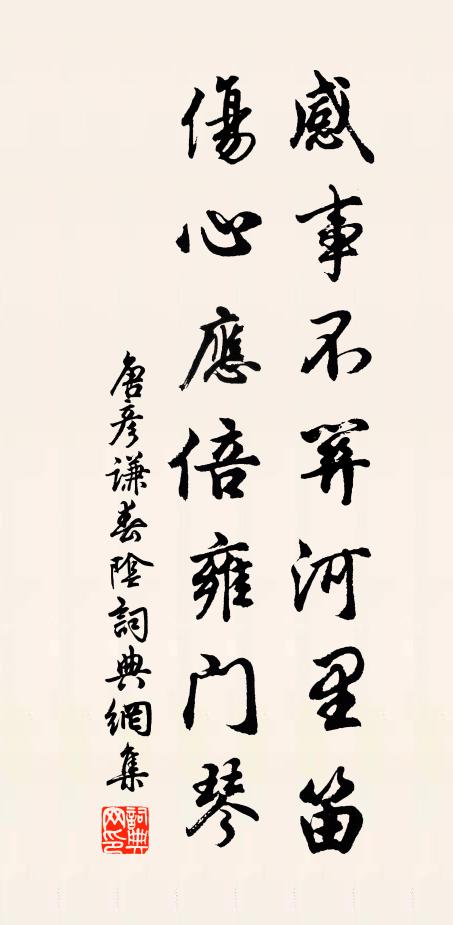 感事不關河里笛
傷心應倍雍門琴
唐彥謙春陰詞典網集
詞典
网印